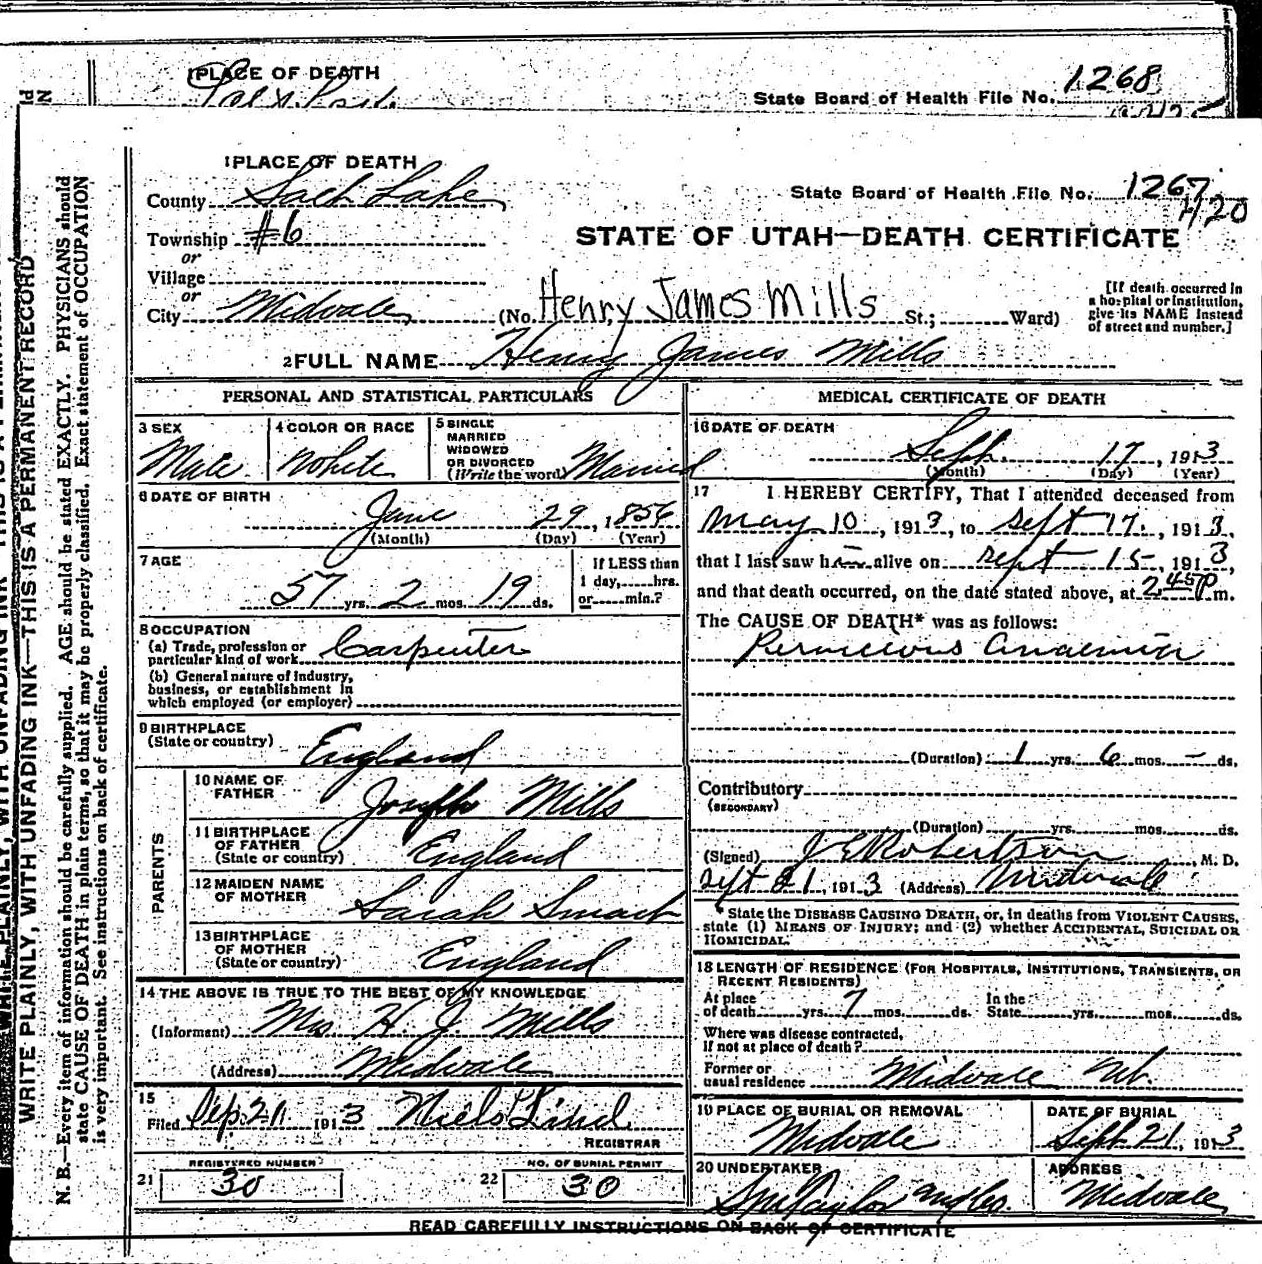 PLACE OF DEATH
State Board of Health File No. 1268
1 PLACE OF DEATH
County Salt Lake
State Board of Health File No. 1267
420
Township #6
or
Village
or
City Midvale
STATE OF UTAH—DEATH CERTIFICATE
(No. Henry James Mills St.; Ward)
[If death occurred in
a hospital or institution,
give its NAME instead
of street and number.]
2 FULL NAME Henry James Mills
PERSONAL AND STATISTICAL PARTICULARS
3 SEX
Male
4 COLOR OR RACE
White
5 SINGLE
MARRIED
WIDOWED
OR DIVORCED
(Write the word) Married
6 DATE OF BIRTH
June 29, 1856
(Month) (Day) (Year)
7 AGE
57 yrs. 2 mos. 19 ds.
If LESS than
1 day, hrs.
or min.?
8 OCCUPATION
(a) Trade, profession or
particular kind of work Carpenter
(b) General nature of industry,
business, or establishment in
which employed (or employer)
9 BIRTHPLACE
(State or country) England
PARENTS
10 NAME OF
FATHER Joseph Mills
11 BIRTHPLACE
OF FATHER
(State or country) England
12 MAIDEN NAME
OF MOTHER Sarah Smart
13 BIRTHPLACE
OF MOTHER
(State or country) England
14 THE ABOVE IS TRUE TO THE BEST OF MY KNOWLEDGE
(Informant) Mrs H. J. Mills
(Address) Midvale
15
Filed Sep. 21 1913 Niels Lind
REGISTRAR
21 REGISTERED NUMBER
30
22 NO. OF BURIAL PERMIT
30
MEDICAL CERTIFICATE OF DEATH
16 DATE OF DEATH
Sept. 17, 1913
(Month) (Day) (Year)
17 I HEREBY CERTIFY, That I attended deceased from
May 10, 1913, to Sept 17, 1913,
that I last saw him alive on Sept 15, 1913,
and that death occurred, on the date stated above, at 2 45 P m.
The CAUSE OF DEATH* was as follows:
Pernicious Anaemia
(Duration) 1 yrs. 6 mos. – ds.
Contributory
(SECONDARY)
(Duration) yrs. mos. ds.
(Signed) J E Robertson, M. D.
Sept 21, 1913 (Address) Midvale
*State the DISEASE CAUSING DEATH, or, in deaths from VIOLENT CAUSES,
state (1) MEANS OF INJURY; and (2) whether ACCIDENTAL, SUICIDAL OR
HOMICIDAL.
18 LENGTH OF RESIDENCE (FOR HOSPITALS, INSTITUTIONS, TRANSIENTS, OR
RECENT RESIDENTS)
At place
of death yrs. 7 mos. ds.
In the
State yrs. mos. ds.
Where was disease contracted,
if not at place of death?
Former or
usual residence Midvale Ut.
19 PLACE OF BURIAL OR REMOVAL
Midvale
DATE OF BURIAL
Sept 21, 1913
20 UNDERTAKER
ADDRESS
Midvale
READ CAREFULLY INSTRUCTIONS ON BACK OF CERTIFICATE
WRITE PLAINLY, WITH UNFADING INK—THIS IS A PERMANENT RECORD
N. B.—Every item of information should be carefully supplied. AGE should be stated EXACTLY. PHYSICIANS should
state CAUSE OF DEATH in plain terms, so that it may be properly classified. Exact statement of OCCUPATION
is very important. See instructions on back of certificate.